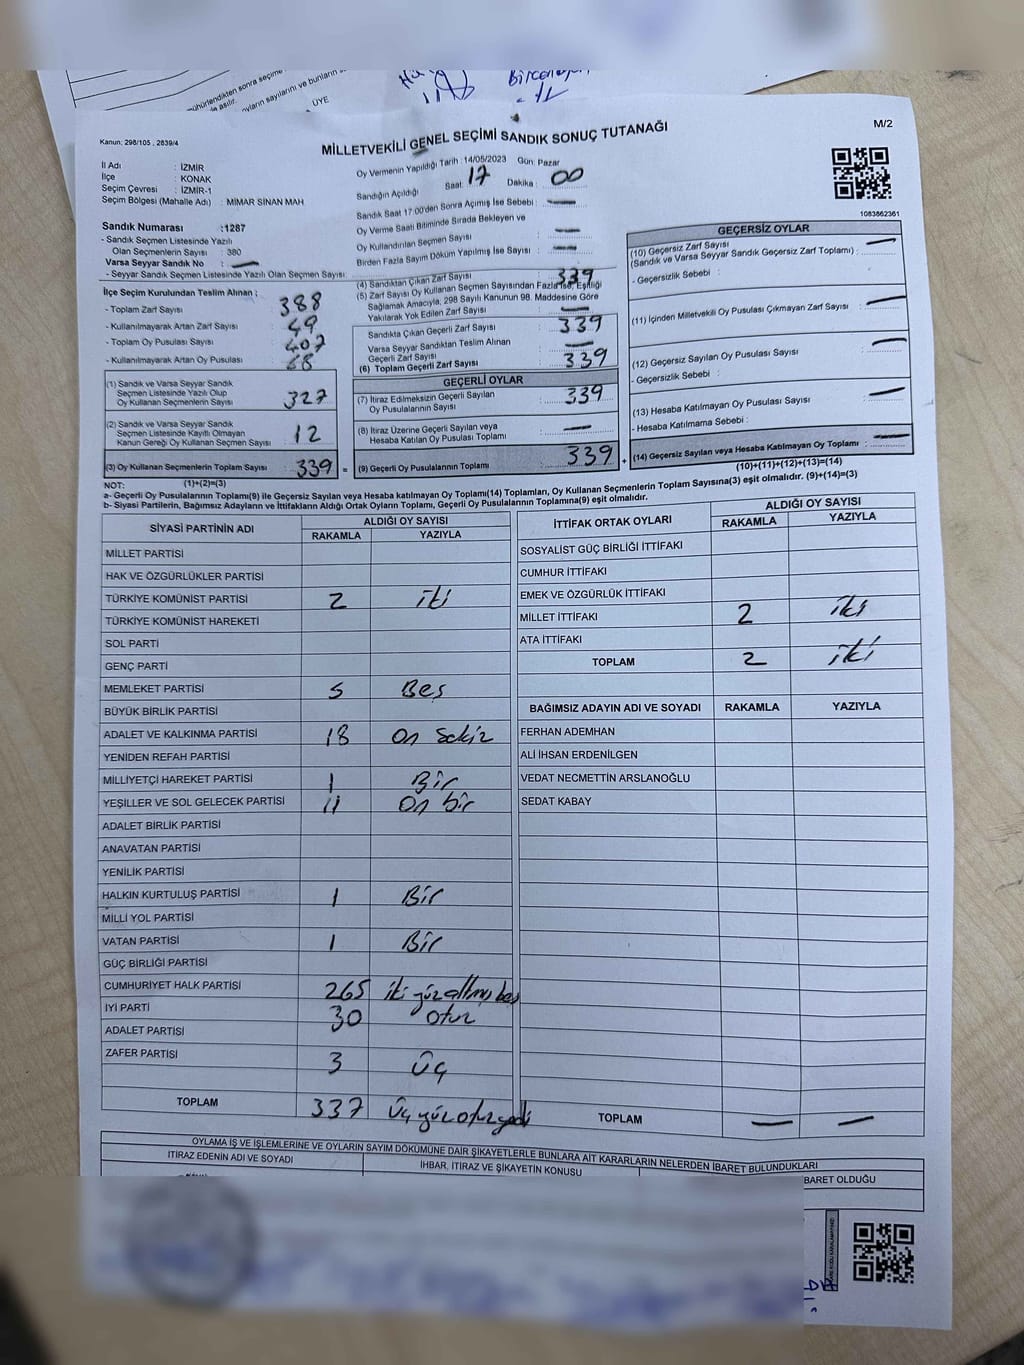 ÜYE
MİLLETVEKİLİ GENEL SEÇİMİ SANDIK SONUÇ TUTANAĞI
M/2
Kanun: 298/105 , 2839/4
İl Adı : İZMİR
İlçe : KONAK
Seçim Çevresi : İZMİR-1
Seçim Bölgesi (Mahalle Adı) : MİMAR SİNAN MAH
Oy Vermenin Yapıldığı Tarih : 14/05/2023 Gün: Pazar
Sandığın Açıldığı Saat: 17 Dakika : 00
Sandık Saat 17:00'den Sonra Açımış İse Sebebi : —
Oy Verme Saati Bitiminde Sırada Bekleyen ve
Oy Kullandırılan Seçmen Sayısı : —
Birden Fazla Sayım Döküm Yapılmış İse Sayısı : —
1083862361
Sandık Numarası : 1287
- Sandık Seçmen Listesinde Yazılı
Olan Seçmenlerin Sayısı : 380
Varsa Seyyar Sandık No : —
- Seyyar Sandık Seçmen Listesinde Yazılı Olan Seçmen Sayısı :
İlçe Seçim Kurulundan Teslim Alınan ;
- Toplam Zarf Sayısı : 388
- Kullanılmayarak Artan Zarf Sayısı : 49
- Toplam Oy Pusulası Sayısı : 407
- Kullanılmayarak Artan Oy Pusulası : 68
(1) Sandık ve Varsa Seyyar Sandık
Seçmen Listesinde Yazılı Olup
Oy Kullanan Seçmenlerin Sayısı : 327
(2) Sandık ve Varsa Seyyar Sandık
Seçmen Listesinde Kayıtlı Olmayan
Kanun Gereği Oy Kullanan Seçmen Sayısı : 12
(3) Oy Kullanan Seçmenlerin Toplam Sayısı : 339 =
(1)+(2)=(3)
(4) Sandıktan Çıkan Zarf Sayısı : 339
(5) Zarf Sayısı Oy Kullanan Seçmen Sayısından Fazla İse, Eşitliği
Sağlamak Amacıyla, 298 Sayılı Kanunun 98. Maddesine Göre
Yakılarak Yok Edilen Zarf Sayısı : —
Sandıkta Çıkan Geçerli Zarf Sayısı : 339
Varsa Seyyar Sandıktan Teslim Alınan
Geçerli Zarf Sayısı : —
(6) Toplam Geçerli Zarf Sayısı : 339
GEÇERLİ OYLAR
(7) İtiraz Edilmeksizin Geçerli Sayılan
Oy Pusulalarının Sayısı : 339
(8) İtiraz Üzerine Geçerli Sayılan veya
Hesaba Katılan Oy Pusulası Toplamı : —
(9) Geçerli Oy Pusulalarının Toplamı : 339 +
GEÇERSİZ OYLAR
(10) Geçersiz Zarf Sayısı
(Sandık ve Varsa Seyyar Sandık Geçersiz Zarf Toplamı) : —
- Geçersizlik Sebebi :
(11) İçinden Milletvekili Oy Pusulası Çıkmayan Zarf Sayısı : —
(12) Geçersiz Sayılan Oy Pusulası Sayısı : —
- Geçersizlik Sebebi :
(13) Hesaba Katılmayan Oy Pusulası Sayısı : —
- Hesaba Katılmama Sebebi :
(14) Geçersiz Sayılan veya Hesaba Katılmayan Oy Toplamı : —
(10)+(11)+(12)+(13)=(14)
NOT:
a- Geçerli Oy Pusulalarının Toplamı(9) ile Geçersiz Sayılan veya Hesaba katılmayan Oy Toplamı(14) Toplamları, Oy Kullanan Seçmenlerin Toplam Sayısına(3) eşit olmalıdır. (9)+(14)=(3)
b- Siyasi Partilerin, Bağımsız Adayların ve İttifakların Aldığı Ortak Oyların Toplamı, Geçerli Oy Pusulalarının Toplamına(9) eşit olmalıdır.
SİYASİ PARTİNİN ADI ALDIĞI OY SAYISI
RAKAMLA YAZIYLA
MİLLET PARTİSİ
HAK VE ÖZGÜRLÜKLER PARTİSİ
TÜRKİYE KOMÜNİST PARTİSİ 2 iki
TÜRKİYE KOMÜNİST HAREKETİ
SOL PARTİ
GENÇ PARTİ
MEMLEKET PARTİSİ 5 Beş
BÜYÜK BİRLİK PARTİSİ
ADALET VE KALKINMA PARTİSİ 18 On sekiz
YENİDEN REFAH PARTİSİ
MİLLİYETÇİ HAREKET PARTİSİ 1 Bir
YEŞİLLER VE SOL GELECEK PARTİSİ 11 On bir
ADALET BİRLİK PARTİSİ
ANAVATAN PARTİSİ
YENİLİK PARTİSİ
HALKIN KURTULUŞ PARTİSİ 1 Bir
MİLLİ YOL PARTİSİ
VATAN PARTİSİ 1 Bir
GÜÇ BİRLİĞİ PARTİSİ
CUMHURİYET HALK PARTİSİ 265 iki yüz altmış beş
İYİ PARTİ 30 otuz
ADALET PARTİSİ
ZAFER PARTİSİ 3 Üç
TOPLAM 337 Üç yüz otuz yedi
İTTİFAK ORTAK OYLARI ALDIĞI OY SAYISI
RAKAMLA YAZIYLA
SOSYALİST GÜÇ BİRLİĞİ İTTİFAKI
CUMHUR İTTİFAKI
EMEK VE ÖZGÜRLÜK İTTİFAKI
MİLLET İTTİFAKI 2 iki
ATA İTTİFAKI
TOPLAM 2 iki
BAĞIMSIZ ADAYIN ADI VE SOYADI RAKAMLA YAZIYLA
FERHAN ADEMHAN
ALİ İHSAN ERDENİLGEN
VEDAT NECMETTİN ARSLANOĞLU
SEDAT KABAY
TOPLAM — —
OYLAMA İŞ VE İŞLEMLERİNE VE OYLARIN SAYIM DÖKÜMÜNE DAİR ŞİKAYETLERLE BUNLARA AİT KARARLARIN NELERDEN İBARET BULUNDUKLARI
İTİRAZ EDENİN ADI VE SOYADI İHBAR, İTİRAZ VE ŞİKAYETİN KONUSU BARET OLDUĞU